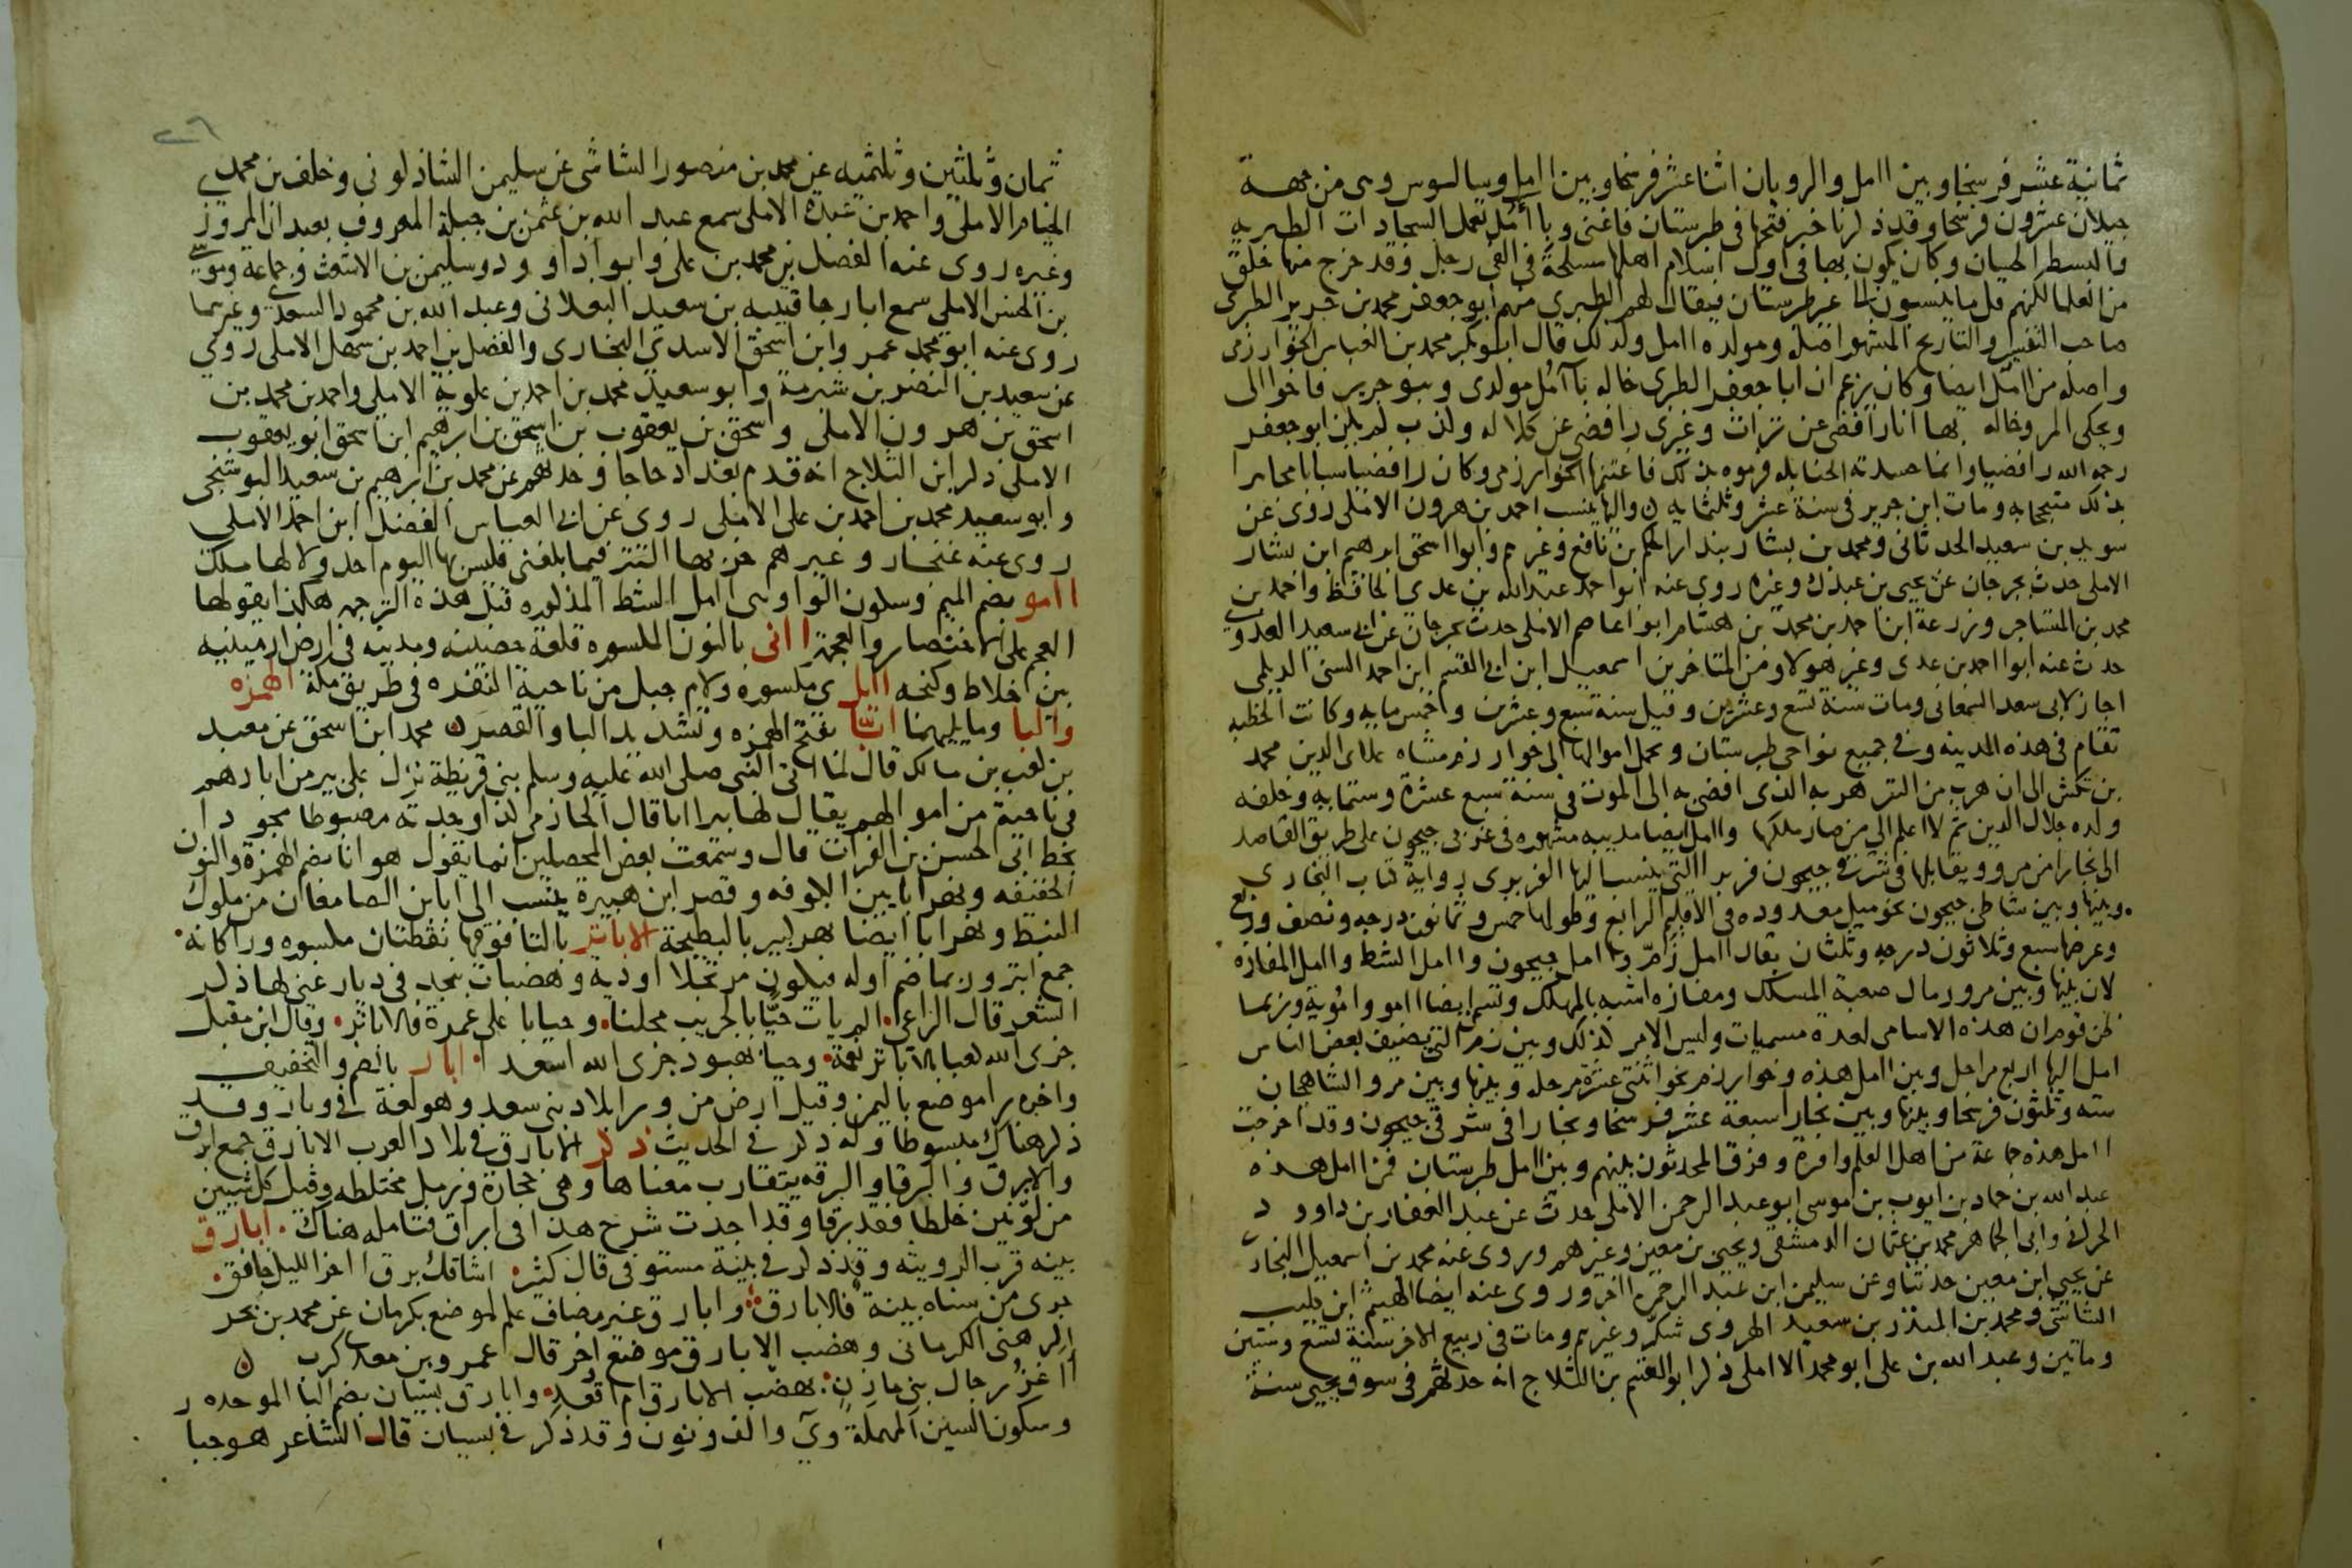 ثمانية عشر فرسخا وبين اامل والرويان اثنا عشر فرسخا وبين اامل وسالوس وهى من جهة
جيلان عشرون فرسخا وقد ذكرنا خبر فتحها فى طبرستان فاغنى وباآمل تعمل السجادات الطبريه
والبسط الحسان وكان يكون بها فى اول اسلام اهلها مسلحة فى الفى رجل وقد خرج منها خلق
من العلما لكنهم قل ما ينسبون الى غير طبرستان فيقال لهم الطبرى منهم ابو جعفر محمد بن جرير الطبرى
صاحب التفسير والتاريخ المشهور اصله ومولده اامل ولذلك قال ابو بكر محمد بن العباس الخوارزمى
واصله من اامل ايضا وكان يزعم ان ابا جعفر الطبرى خاله باآمل مولدى وبنو جرير فاخوالى
ويحكى المرو خاله بها انا رافضى عن تراث وغيرى رافضى عن كلاله وكذب لم يكن ابو جعفر
رحمه الله رافضيا وانما حسدته الحنابله فرموه بذلك فاغتنمها الخوارزمى وكان رافضيا سبابا مجاهرا
بذلك متبجحا به ومات ابن جرير فى سنة عشر وثلثمايه واليها ينسب احمد بن هرون الاملى روى عن
سويد بن سعيد الحدثانى ومحمد بن بشار بندار الحكم بن نافع وغيرهم وابوا اسحق ابرهيم ابن بشار
الاملى حدث بجرجان عن يحيى بن عبدك وغيره روى عنه ابوا احمد عبد الله بن عدى الحافظ واحمد بن
محمد بن المشاجر وزرعة ابن احمد بن محمد بن هشام ابوا عاصم الاملى حدث بجرجان عن ابى سعيد العدوى
حدث عنه ابوا احمد بن عدى وغير هولا ومن المتاخرين اسمعيل ابن ابى القسم ابن احمد السنى الديلمى
اجاز لابى سعد السمعانى ومات سنة تسع وعشرين وقيل سنه سبع وعشرين واخمس مايه وكانت الخطبه
تقام فى هذه المدينه وفى جميع نواحى طبرستان وتحمل اموالها الى خوارزم شاه علاى الدين محمد
بن تكش الى ان هرب من التتر هربه الذى افضى به الى الموت فى سنة سبع عشرة وستمايه وخلفه
ولده جلال الدين ثم لا اعلم الى من صار ملكها واامل ايضا مدينه مشهوره فى غربى جيحون على طريق القاصد
الى بخارا من مرو ويقابلها فى شرقى جيحون فربر االتى ينسب اليها الفربرى رواية كتاب البخارى
وبينها وبين شاطى جيحون نحو ميل معدوده فى الاقليم الرابع وطولها خمس وثمانون درجه ونصف وربع
وعرضها سبع وثلاثون درجه وثلثان يقال اامل زمّ واامل جيحون واامل الشط واامل المفازه
لان بينها وبين مرو رمال صعبة المسلك ومفازه اشبه بالمهلك وتسمى ايضا اامو وامويه وربما
ظن قوم ان هذه الاسامى لعدة مسميات وليس الامر كذلك وبين زم التى يضيف بعض الناس
امل اليها اربع مراحل وبين اامل هذه وخوارزم نحو اثنتى عشرة مرحله وبينها وبين مرو الشاهجان
سته وثلثون فرسخا وبينها وبين بخارا سبعة عشر فرسخا وبخارا فى شرقى جيحون وقد اخرجت
اامل هذه جماعة من اهل العلم وافرة وفرق المحدثون بينهم وبين اامل طبرستان فمن اامل هذه
عبد الله بن حماد بن ايوب بن موسى ابو عبد الرحمن الاملى حدث عن عبد الغفار بن داوود
الحرانى وابى الجماهر محمد بن عثمان الدمشقى ويحيى بن معين وغيرهم وروى عنه محمد بن اسمعيل البخارى
عن يحيى ابن معين حديثا وعن سليمن ابن عبد الرحمن ااخر وروى عنه ايضا الهيثم ابن كليب
الشاشى ومحمد بن المنذر بن سعيد الهروى شكر وغيرهم ومات فى ربيع الاخر سنة تسع وستين
وماتين وعبد الله بن على ابو محمد الااملى ذكر ابو القسم بن الثلاج انه حدثهم فى سوق يحيى سنة
٢٦
ثمان وثلثين وثلثميه عن محمد بن منصور الشاشى عن سليمن الشاذكونى وخلف بن محمد
الخيام الاملى واحمد بن عبدة الاملى سمع عبد الله بن عثمن بن جبلة المعروف بعبدان المروزى
وغيره روى عنه الفضل بن محمد بن على وابو اداوود وسليمن بن الاشعث وجماعة وموسى
بن الحسن الاملى سمع ابا رجا قتيبه بن سعيد البغلانى وعبد الله بن محمود السعدى وغيرهما
روى عنه ابو محمد عمر وابن اسحق الاسدى البخارى والفضل بن احمد بن سهل الاملى روى
عن سعيد بن النضر بن شبرمة وابو سعيد محمد بن احمد بن علويه الاملى واحمد بن محمد بن
اسحق بن هرون الاملى واسحق بن يعقوب بن اسحق بن ابرهيم ابن اسحق ابو يعقوب
الاملى ذكر ابن الثلاج انه قدم بغداد حاجا وحدثهم عن محمد بن ابرهيم بن سعيد البوشنجى
وابو سعيد محمد بن احمد بن على الاملى روى عن ابى العباس الفضل ابن احمد الاملى
روى عنه غنجار وغيرهم خربها التتر فيما بلغنى فليس بها اليوم احد ولا لها ملك
اامو بضم الميم وسكون الواو وهى اامل الشط المذكوره قبل هذه الترجمه هكذا يقولها
العجم على الاختصار والعجمة اانى بالنون المكسوره قلعة حصينه ومدينه فى ارض ارمينيه
بين اخلاط وكنجه اايل ى مكسوره ولام جبل من ناحية النقره فى طريق مكة الهمزه
والبا وما يليهما ابّا بفتح الهمزه وتشديد البا والقصر محمد ابن اسحق عن معبد
بن كعب بن مالك قال لما اتى النبى صلى الله عليه وسلم بنى قريظة نزل على بير من ابارهم
فى ناحية من اموالهم يقال لها بير ابا قال الحازمى كذا وجدته مضبوطا مجودا
بخط ابى الحسن بن الفرات قال وسمعت بعض المحصلين انما يقول هو انا بضم الهمزة والنون
الخفيفه ونهر ابا بين الكوفه وقصر ابن هبيرة ينسب الى ابا بن الصامغان من ملوك
النبط ونهر ابا ايضا نهر كبير بالبطيحة الاباتر بالتا فوقها نقطتان مكسوره ورا كانه
جمع ابتر وربما ضم اوله فيكون مرتجلا اودية وهضبات بنجد فى ديار غنى لها ذكر
الشعر قال الراعى الم يات حيًّا بالجريب محلنا وحيا با على غمرة فالاباتر وقال ابن مقبل
جزى الله كعبا بالاباتر نعمة وحيا بهبود جزى الله اسعدا ابار بالضم والتخفيف
واخره را موضع باليمن وقيل ارض من ورا بلاد بنى سعد وهو لغة فى وبار وقد
ذكر هناك مبسوطا وله ذكر فى الحديث ذكر الابارق فى بلاد العرب الابارق جمع ابرق
والابرق والبرقا والبرقه يتقارب معناها وهى حجارة ورمل مختلطه وقيل كل شيين
من لونين خلطا فقد برقا وقد اجدت شرح هذا فى ابراق فتامله هناك ابارق
بينه قرب الرويثه وقد ذكر فى بينة مستوفى قال كثير اشاقك برق ااخر الليل خافق
جرى من سناه بينة فالابارق وابارق غير مضاف علم لموضع بكرمان عن محمد بن بحر
الرهنى الكرمانى وهضب الابارق موضع اخر قال عمرو بن معدى كرب
ااغز رجال بنى مازن بهضب الابارق ام اقعد وابارق بسيان بضم البا الموحده
وسكون السين المهملة وى والف ونون وقد ذكر فى بسيان قال الشاعر هو جبا